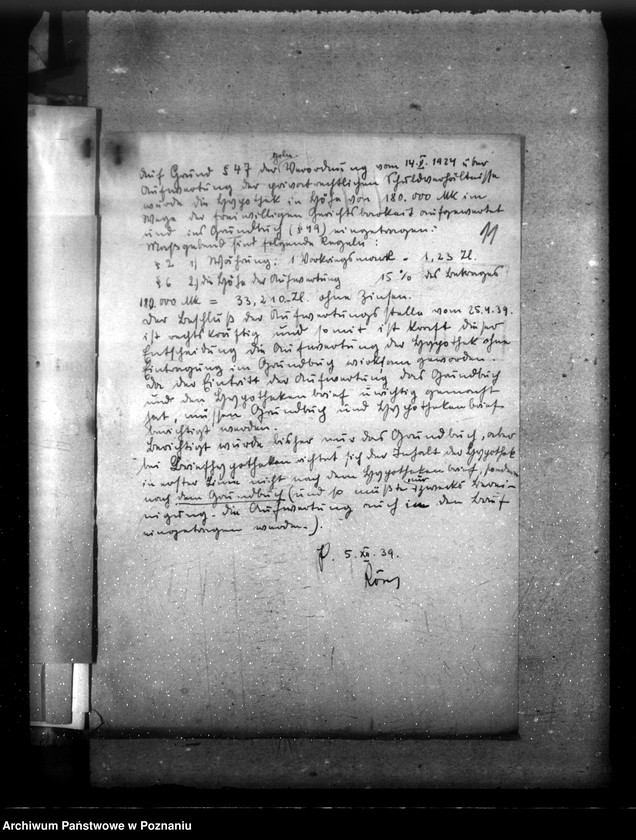 poln.
Auf Grund § 47 der Verordnung vom 14.V.1924 über
Aufwertung der privatrechtlichen Schuldverhältnisse
wurde die Hypothek in Höhe von 180.000 Mk im
Wege der freiwilligen Gerichtsbarkeit aufgewertet
und ins Grundbuch (§ 49) eingetragen.
11
Maßgebend sind folgende Regeln:
§ 2 1) Währung: 1 Vorkriegsmark = 1,23 Zl.
§ 6 2) die Höhe der Aufwertung 15% des Betrages
180.000 Mk = 33,210.-Zl. ohne Zinsen.
Der Beschluß der Aufwertungsstelle vom 25.4.39.
ist rechtskräftig und somit ist kraft dieser
Entscheidung die Aufwertung der Hypothek ohne
Eintragung im Grundbuch wirksam geworden.
Da der Eintritt der Aufwertung das Grundbuch
und den Hypothekenbrief unrichtig gemacht
hat, müssen Grundbuch und Hypothekenbrief
berichtigt werden.
Berichtigt wurde bisher nur das Grundbuch, aber
bei Briefhypotheken richtet sich der Inhalt der Hypothek
in erster Linie nicht nach dem Hypothekenbrief, sondern
nach dem Grundbuch (und so müßte nur zwecks Berei-
nigung die Aufwertung auch in den Brief
eingetragen werden.).
P. 5.XII.39.